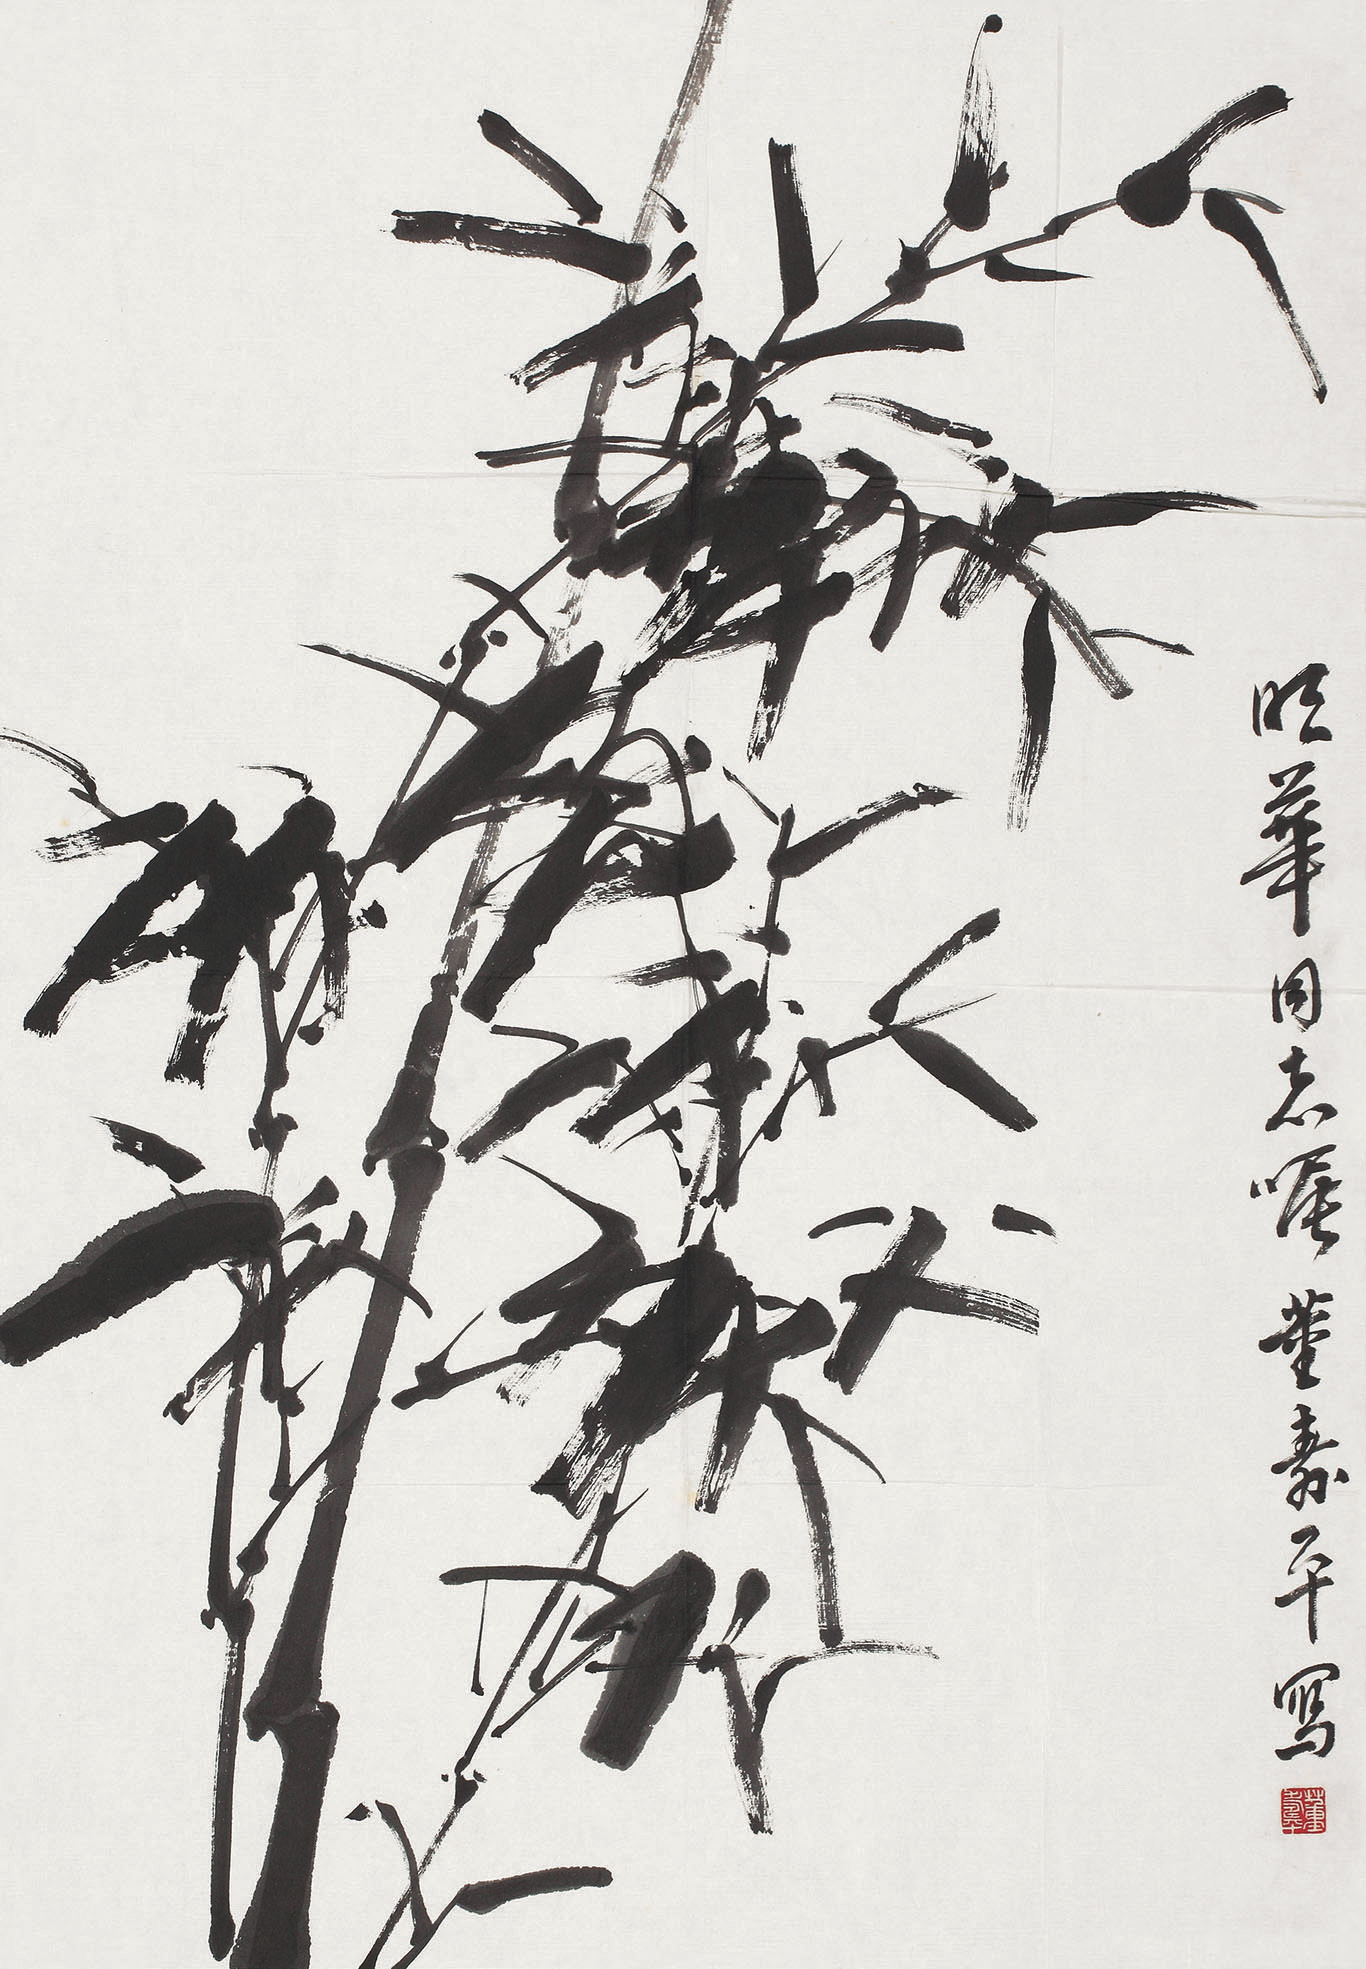 華同志嘱董壽平寫
董壽平